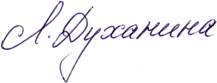 Л. Духанина